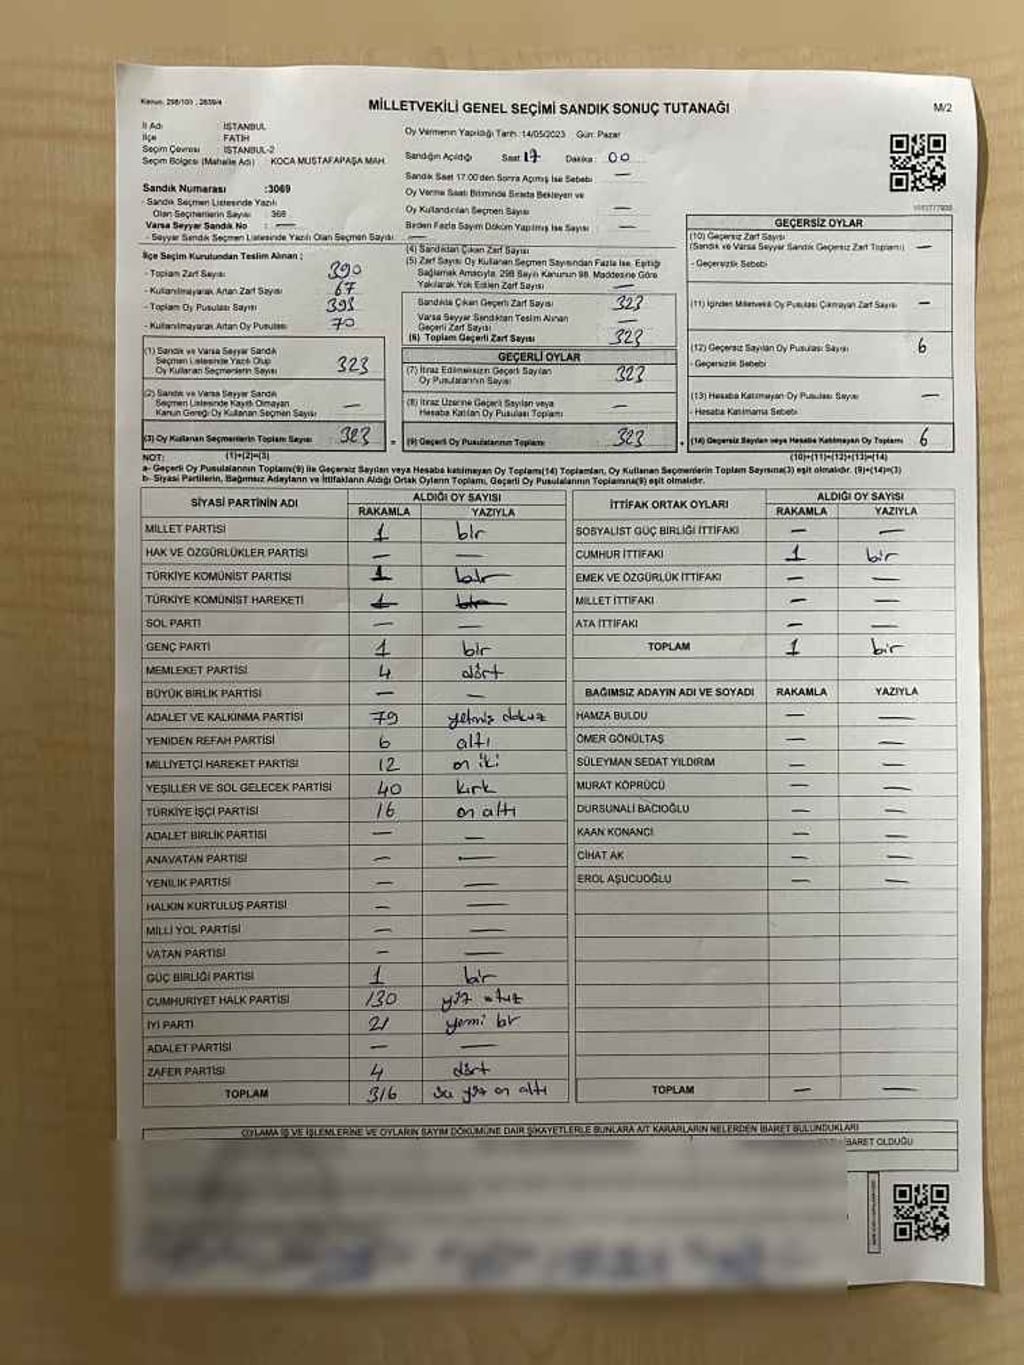 Kanun: 298/103 , 2839/4
MİLLETVEKİLİ GENEL SEÇİMİ SANDIK SONUÇ TUTANAĞI
M/2
İl Adı : İSTANBUL
İlçe : FATİH
Seçim Çevresi : İSTANBUL-2
Seçim Bölgesi (Mahalle Adı) KOCA MUSTAFAPAŞA MAH.
Oy Vermenin Yapıldığı Tarih :14/05/2023 Gün: Pazar
Sandığın Açıldığı Saat 17 Dakika : 00
Sandık Saat 17.00'den Sonra Açılmış İse Sebebi —
Oy Verme Saati Bitiminde Sırada Bekleyen ve
Oy Kullandırılan Seçmen Sayısı —
Birden Fazla Sayım Döküm Yapılmış İse Sayısı —
Sandık Numarası :3069
- Sandık Seçmen Listesinde Yazılı
Olan Seçmenlerin Sayısı : 368
Varsa Seyyar Sandık No : —
- Seyyar Sandık Seçmen Listesinde Yazılı Olan Seçmen Sayısı —
İlçe Seçim Kurulundan Teslim Alınan ;
- Toplam Zarf Sayısı 390
- Kullanılmayarak Artan Zarf Sayısı 67
- Toplam Oy Pusulası Sayısı 393
- Kullanılmayarak Artan Oy Pusulası 70
(1) Sandık ve Varsa Seyyar Sandık
Seçmen Listesinde Yazılı Olup
Oy Kullanan Seçmenlerin Sayısı 323
(2) Sandık ve Varsa Seyyar Sandık
Seçmen Listesinde Kayıtlı Olmayan
Kanun Gereği Oy Kullanan Seçmen Sayısı —
(3) Oy Kullanan Seçmenlerin Toplam Sayısı 323 =
(1)+(2)=(3)
(4) Sandıktan Çıkan Zarf Sayısı
(5) Zarf Sayısı Oy Kullanan Seçmen Sayısından Fazla İse, Eşitliği
Sağlamak Amacıyla, 298 Sayılı Kanunun 98. Maddesine Göre
Yakılarak Yok Edilen Zarf Sayısı —
Sandıkta Çıkan Geçerli Zarf Sayısı 323
Varsa Seyyar Sandıktan Teslim Alınan
Geçerli Zarf Sayısı —
(6) Toplam Geçerli Zarf Sayısı 323
GEÇERLİ OYLAR
(7) İtiraz Edilmeksizin Geçerli Sayılan
Oy Pusulalarının Sayısı 323
(8) İtiraz Üzerine Geçerli Sayılan veya
Hesaba Katılan Oy Pusulası Toplamı —
(9) Geçerli Oy Pusulalarının Toplamı 323
GEÇERSİZ OYLAR
(10) Geçersiz Zarf Sayısı
(Sandık ve Varsa Seyyar Sandık Geçersiz Zarf Toplamı) —
- Geçersizlik Sebebi
(11) İçinden Milletvekili Oy Pusulası Çıkmayan Zarf Sayısı —
(12) Geçersiz Sayılan Oy Pusulası Sayısı 6
- Geçersizlik Sebebi
(13) Hesaba Katılmayan Oy Pusulası Sayısı —
- Hesaba Katılmama Sebebi
(14) Geçersiz Sayılan veya Hesaba Katılmayan Oy Toplamı 6
(10)+(11)+(12)+(13)=(14)
NOT:
a- Geçerli Oy Pusulalarının Toplamı(9) ile Geçersiz Sayılan veya Hesaba katılmayan Oy Toplamı(14) Toplamları, Oy Kullanan Seçmenlerin Toplam Sayısına(3) eşit olmalıdır. (9)+(14)=(3)
b- Siyasi Partilerin, Bağımsız Adayların ve İttifakların Aldığı Ortak Oyların Toplamı, Geçerli Oy Pusulalarının Toplamına(9) eşit olmalıdır.
SİYASİ PARTİNİN ADI ALDIĞI OY SAYISI
RAKAMLA YAZIYLA
MİLLET PARTİSİ 1 bir
HAK VE ÖZGÜRLÜKLER PARTİSİ — —
TÜRKİYE KOMÜNİST PARTİSİ 1 bir
TÜRKİYE KOMÜNİST HAREKETİ 1 bir
SOL PARTİ — —
GENÇ PARTİ 1 bir
MEMLEKET PARTİSİ 4 dört
BÜYÜK BİRLİK PARTİSİ — —
ADALET VE KALKINMA PARTİSİ 79 yetmiş dokuz
YENİDEN REFAH PARTİSİ 6 altı
MİLLİYETÇİ HAREKET PARTİSİ 12 on iki
YEŞİLLER VE SOL GELECEK PARTİSİ 40 kırk
TÜRKİYE İŞÇİ PARTİSİ 16 on altı
ADALET BİRLİK PARTİSİ — —
ANAVATAN PARTİSİ — —
YENİLİK PARTİSİ — —
HALKIN KURTULUŞ PARTİSİ — —
MİLLİ YOL PARTİSİ — —
VATAN PARTİSİ — —
GÜÇ BİRLİĞİ PARTİSİ 1 bir
CUMHURİYET HALK PARTİSİ 130 yüz otuz
İYİ PARTİ 21 yirmi bir
ADALET PARTİSİ — —
ZAFER PARTİSİ 4 dört
TOPLAM 316 üç yüz on altı
İTTİFAK ORTAK OYLARI ALDIĞI OY SAYISI
RAKAMLA YAZIYLA
SOSYALİST GÜÇ BİRLİĞİ İTTİFAKI — —
CUMHUR İTTİFAKI 1 bir
EMEK VE ÖZGÜRLÜK İTTİFAKI — —
MİLLET İTTİFAKI — —
ATA İTTİFAKI — —
TOPLAM 1 bir
BAĞIMSIZ ADAYIN ADI VE SOYADI RAKAMLA YAZIYLA
HAMZA BULDU — —
ÖMER GÖNÜLTAŞ — —
SÜLEYMAN SEDAT YILDIRIM — —
MURAT KÖPRÜCÜ — —
DURSUNALİ BACIOĞLU — —
KAAN KONANCI — —
CİHAT AK — —
EROL AŞUCUOĞLU — —
TOPLAM — —
OYLAMA İŞ VE İŞLEMLERİNE VE OYLARIN SAYIM DÖKÜMÜNE DAİR ŞİKAYETLERLE BUNLARA AİT KARARLARIN NELERDEN İBARET BULUNDUKLARI
İBARET OLDUĞU